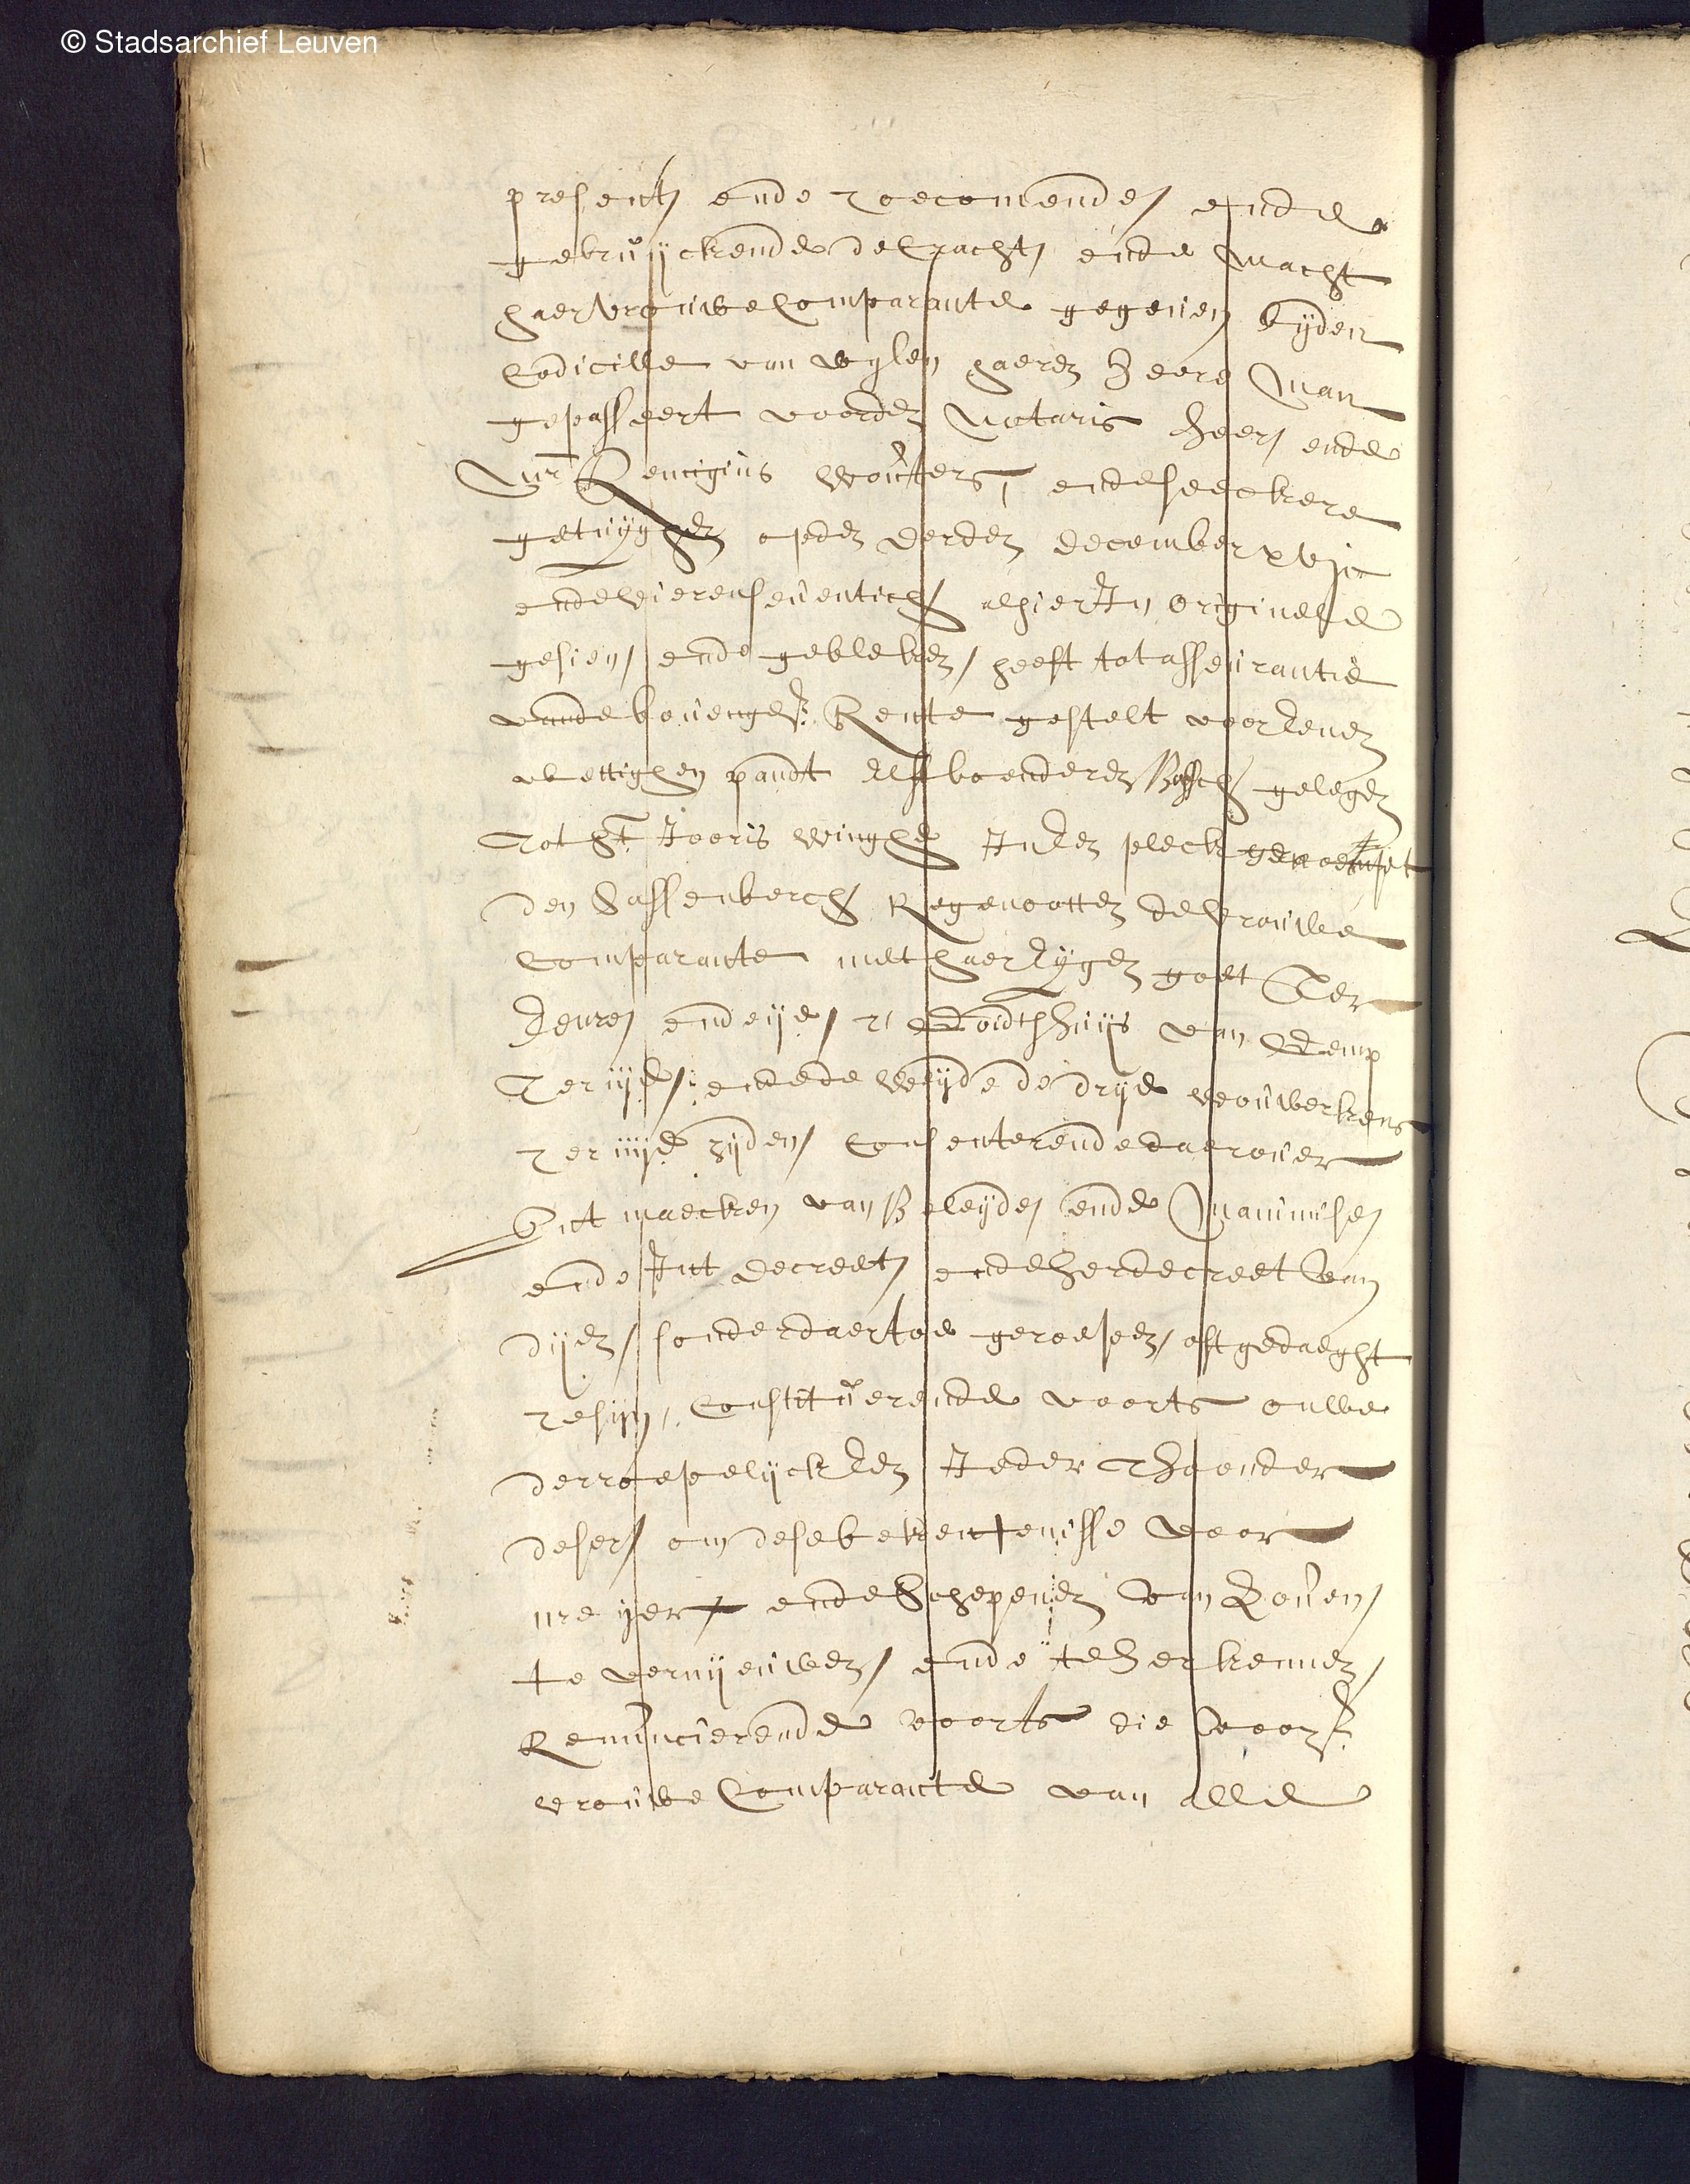 © Stadsarchief Leuven
present ende toecomende ende
gebruijckende de cracht ende macht
haer vrouwe Comparante gegeven bijden
Codicille van wylen haeren heere man
gepasseert voorden Notaris heer ende
Mr Remigius Wouters, ende seeckere
getuijghen opden derden december xvjc
ende vierenseventich alhier In originele
gesien, ende gebleken, heeft tot asseurantie
vande bovenges: Rente gestelt voor eenen
wettighen pandt elff boenderen Bosch gelegen
Tot St Jooris Winghe In een pleck genoempt
den Hassenberch Regenootten de vrouwe
Comparante met haer eijgen goet Ter
eenre ende ije, t' Godtshuijs van
Ter iije, ende de weijde de drije vrouwkens
ter iiije zijden, Consenterende daerover
Int maecken van Beleyde ende Manuise
ende Int decreet ende herdecreet van
dijen, sonder daertoe geroepen, oft gedaeght
te sijn, Constituerende voorts onwe
derroepelijck een Ieder Thoonder
deser, om dese bekentenisse voor
mre yer ende Schepenen van Loven,
te vernijeuwen, ende te herkennen,
Renuncierende voorts die voors:
vrouwe Comparante van alle